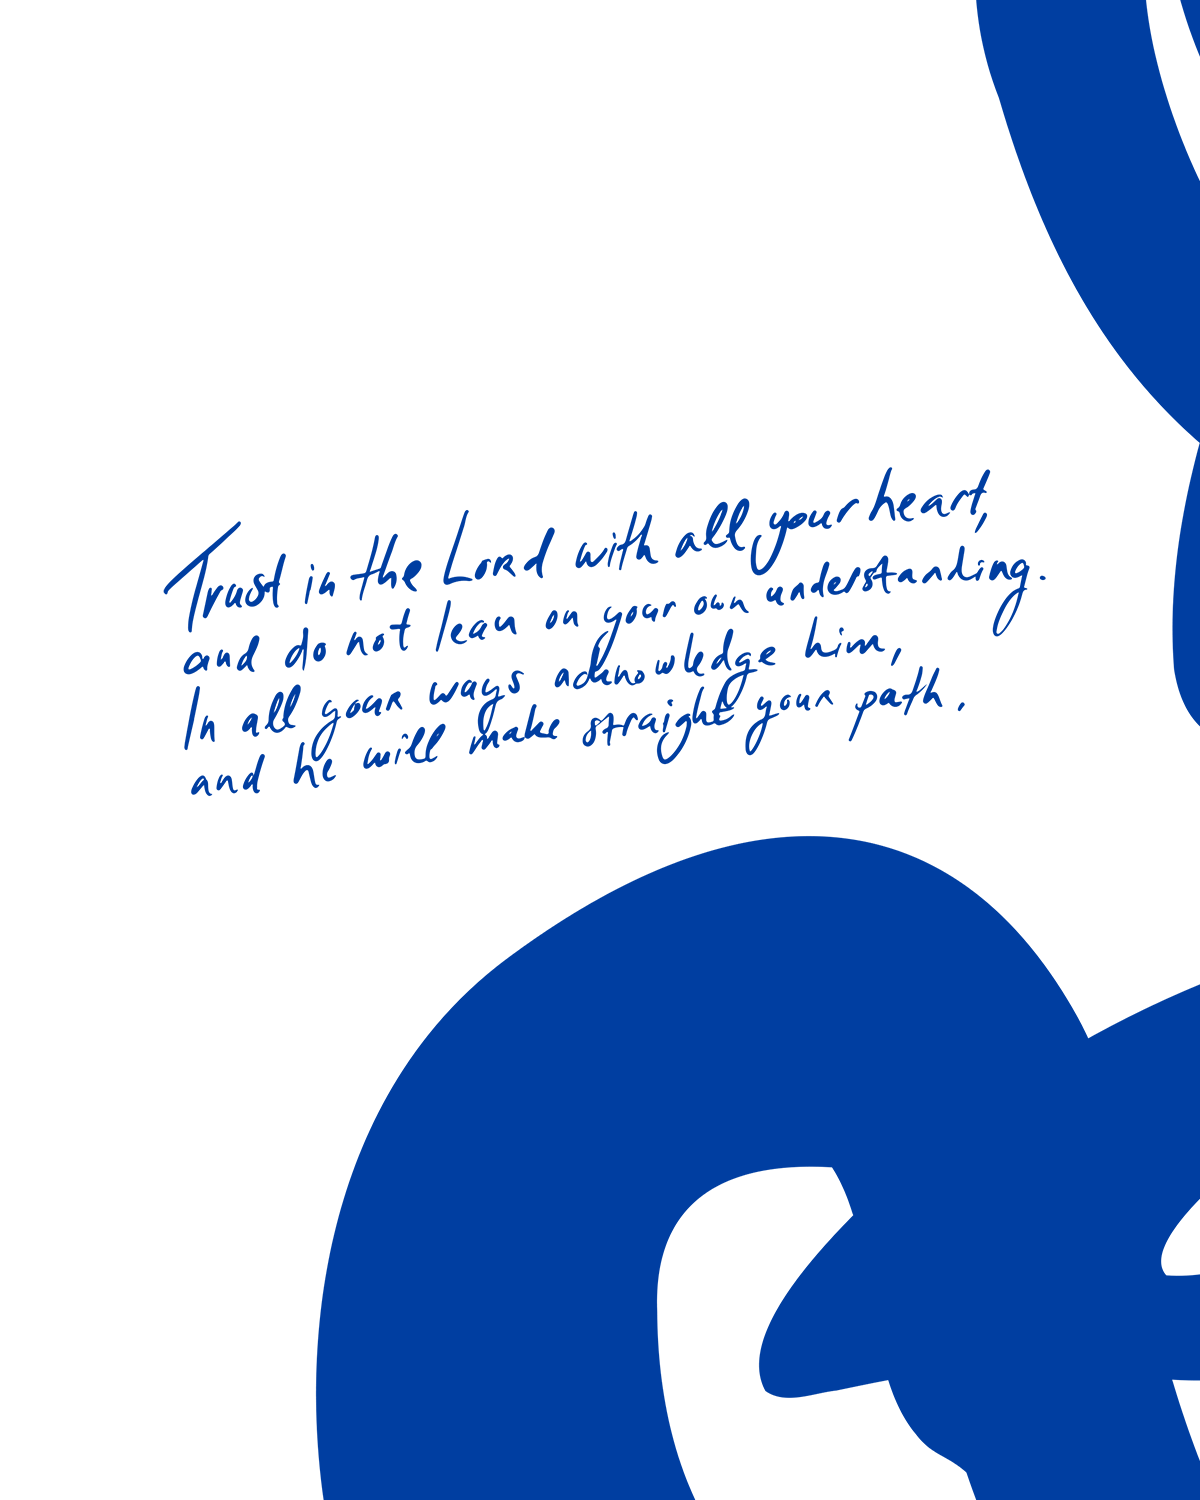 Trust in the Lord with all your heart,
and do not lean on your own understanding.
In all your ways acknowledge him,
and he will make straight your path.